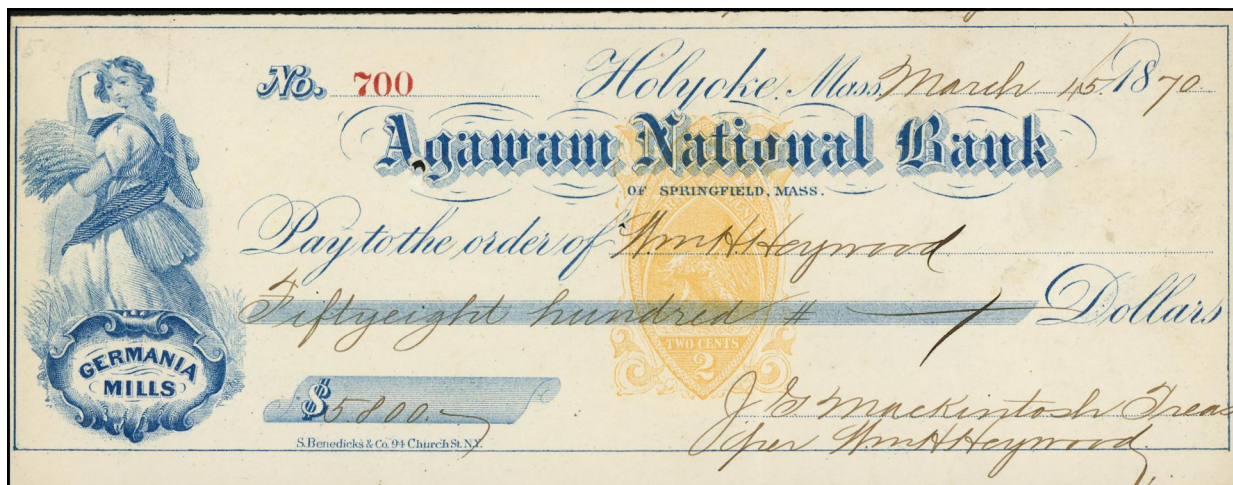 No. 700 Holyoke, Mass. March 15 1870.
Agawam National Bank
OF SPRINGFIELD, MASS.
Pay to the order of Wm. H. Heywood
Fiftyeight hundred # Dollars
TWO CENTS
2
GERMANIA
MILLS
$5800
S. Benedicks & Co. 94 Church St. N.Y.
J G Mackintosh Treas
per Wm H Heywood